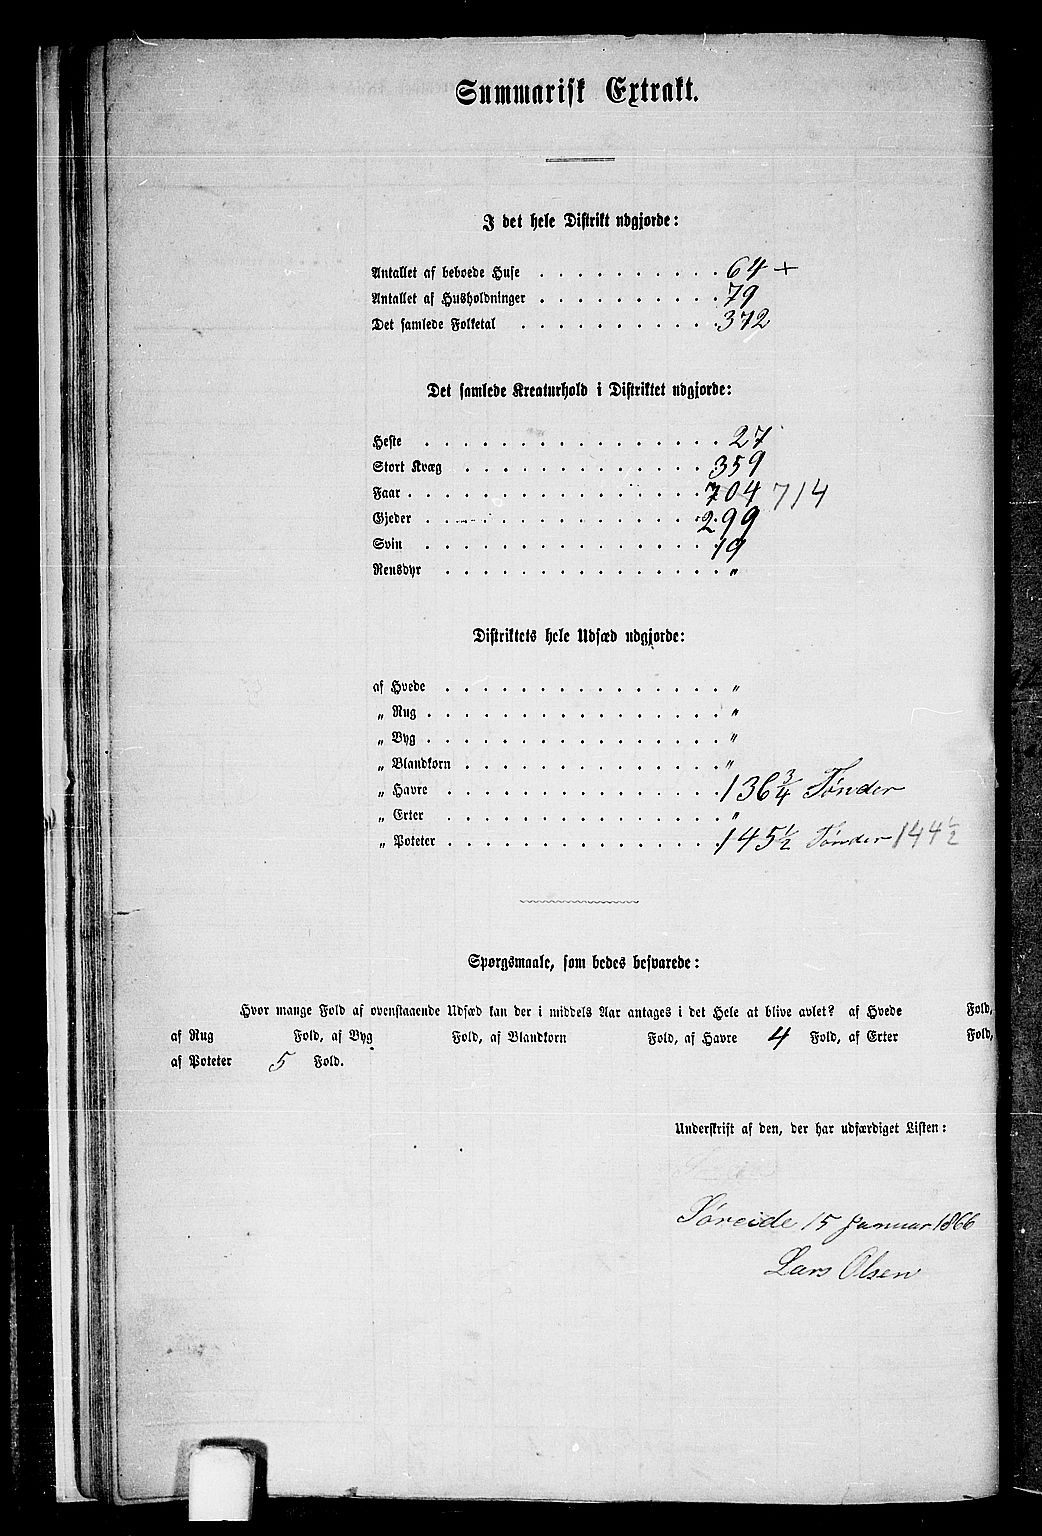 Summarisk Extrakt.
I det hele Distrikt udgjorde:
Antallet af beboede Huse . . . . . . . . . . 64 +
Antallet af Husholdninger . . . . . . . . . . 79
Det samlede Folketal . . . . . . . . . . . 372
Det samlede Kreaturhold i Distriktet udgjorde:
Heste . . . . . . . . . . . . . . . . 27
Stort Kvæg . . . . . . . . . . . . . 359
Faar . . . . . . . . . . . . . . . . 704 714
Gjeder . . . . . . . . . . . . . . . 299
Svin . . . . . . . . . . . . . . . . 19
Rensdyr . . . . . . . . . . . . . . . "
Distriktets hele Udsæd udgjorde:
af Hvede . . . . . . . . . . . . . . . "
„ Rug . . . . . . . . . . . . . . . . "
„ Byg . . . . . . . . . . . . . . . . "
„ Blandkorn . . . . . . . . . . . . . . "
„ Havre . . . . . . . . . . . . . . . 136 3/4 Tønder
„ Erter . . . . . . . . . . . . . . . "
„ Poteter . . . . . . . . . . . . . . . 145 1/2 Tønder 144 1/2
Spørgsmaale, som bedes besvarede:
Hvor mange Fold af ovenstaaende Udsæd kan der i middels Aar antages i det Hele at blive avlet? af Hvede Fold,
af Rug Fold, af Byg Fold, af Blandkorn Fold, af Havre 4 Fold, af Erter Fold,
af Poteter 5 Fold.
Underskrift af den, der har udfærdiget Listen:
Søreide 15 Januar 1866
Lars Olsen